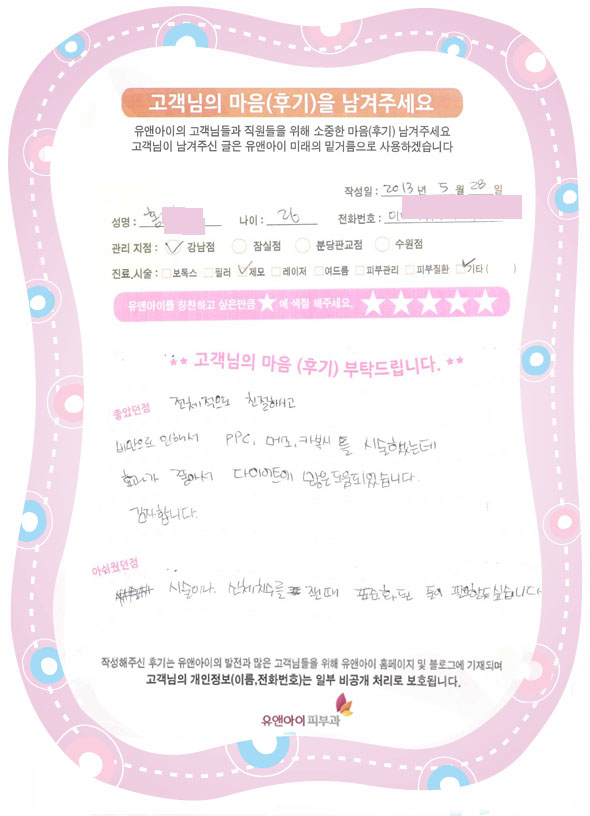 고객님의 마음(후기)을 남겨주세요
유앤아이의 고객님들과 직원들을 위해 소중한 마음(후기) 남겨주세요
고객님이 남겨주신 글은 유앤아이 미래의 밑거름으로 사용하겠습니다
작성일 : 2013 년 5 월 28 일
성명 : 나이 : 전화번호 :
관리 지점 : 강남점 잠실점 분당판교점 수원점
진료,시술 : 보톡스 필러 제모 레이저 여드름 피부관리 피부질환 기타 ( )
유앤아이를 칭찬하고 싶은만큼 ★ 에 색칠 해주세요. ★★★★★
** 고객님의 마음 (후기) 부탁드립니다. **
좋았던점 전체적으로 친절하시고
비만으로 인해서 PPC, 메조, 카복시 를 시술했는데
효과가 좋아서 다이어트에 많은 도움되었습니다.
감사합니다.
아쉬웠던점
시술이나 신체치수를 잴때
작성해주신 후기는 유앤아이의 발전과 많은 고객님들을 위해 유앤아이 홈페이지 및 블로그에 기재되며
고객님의 개인정보(이름,전화번호)는 일부 비공개 처리로 보호됩니다.
유앤아이피부과